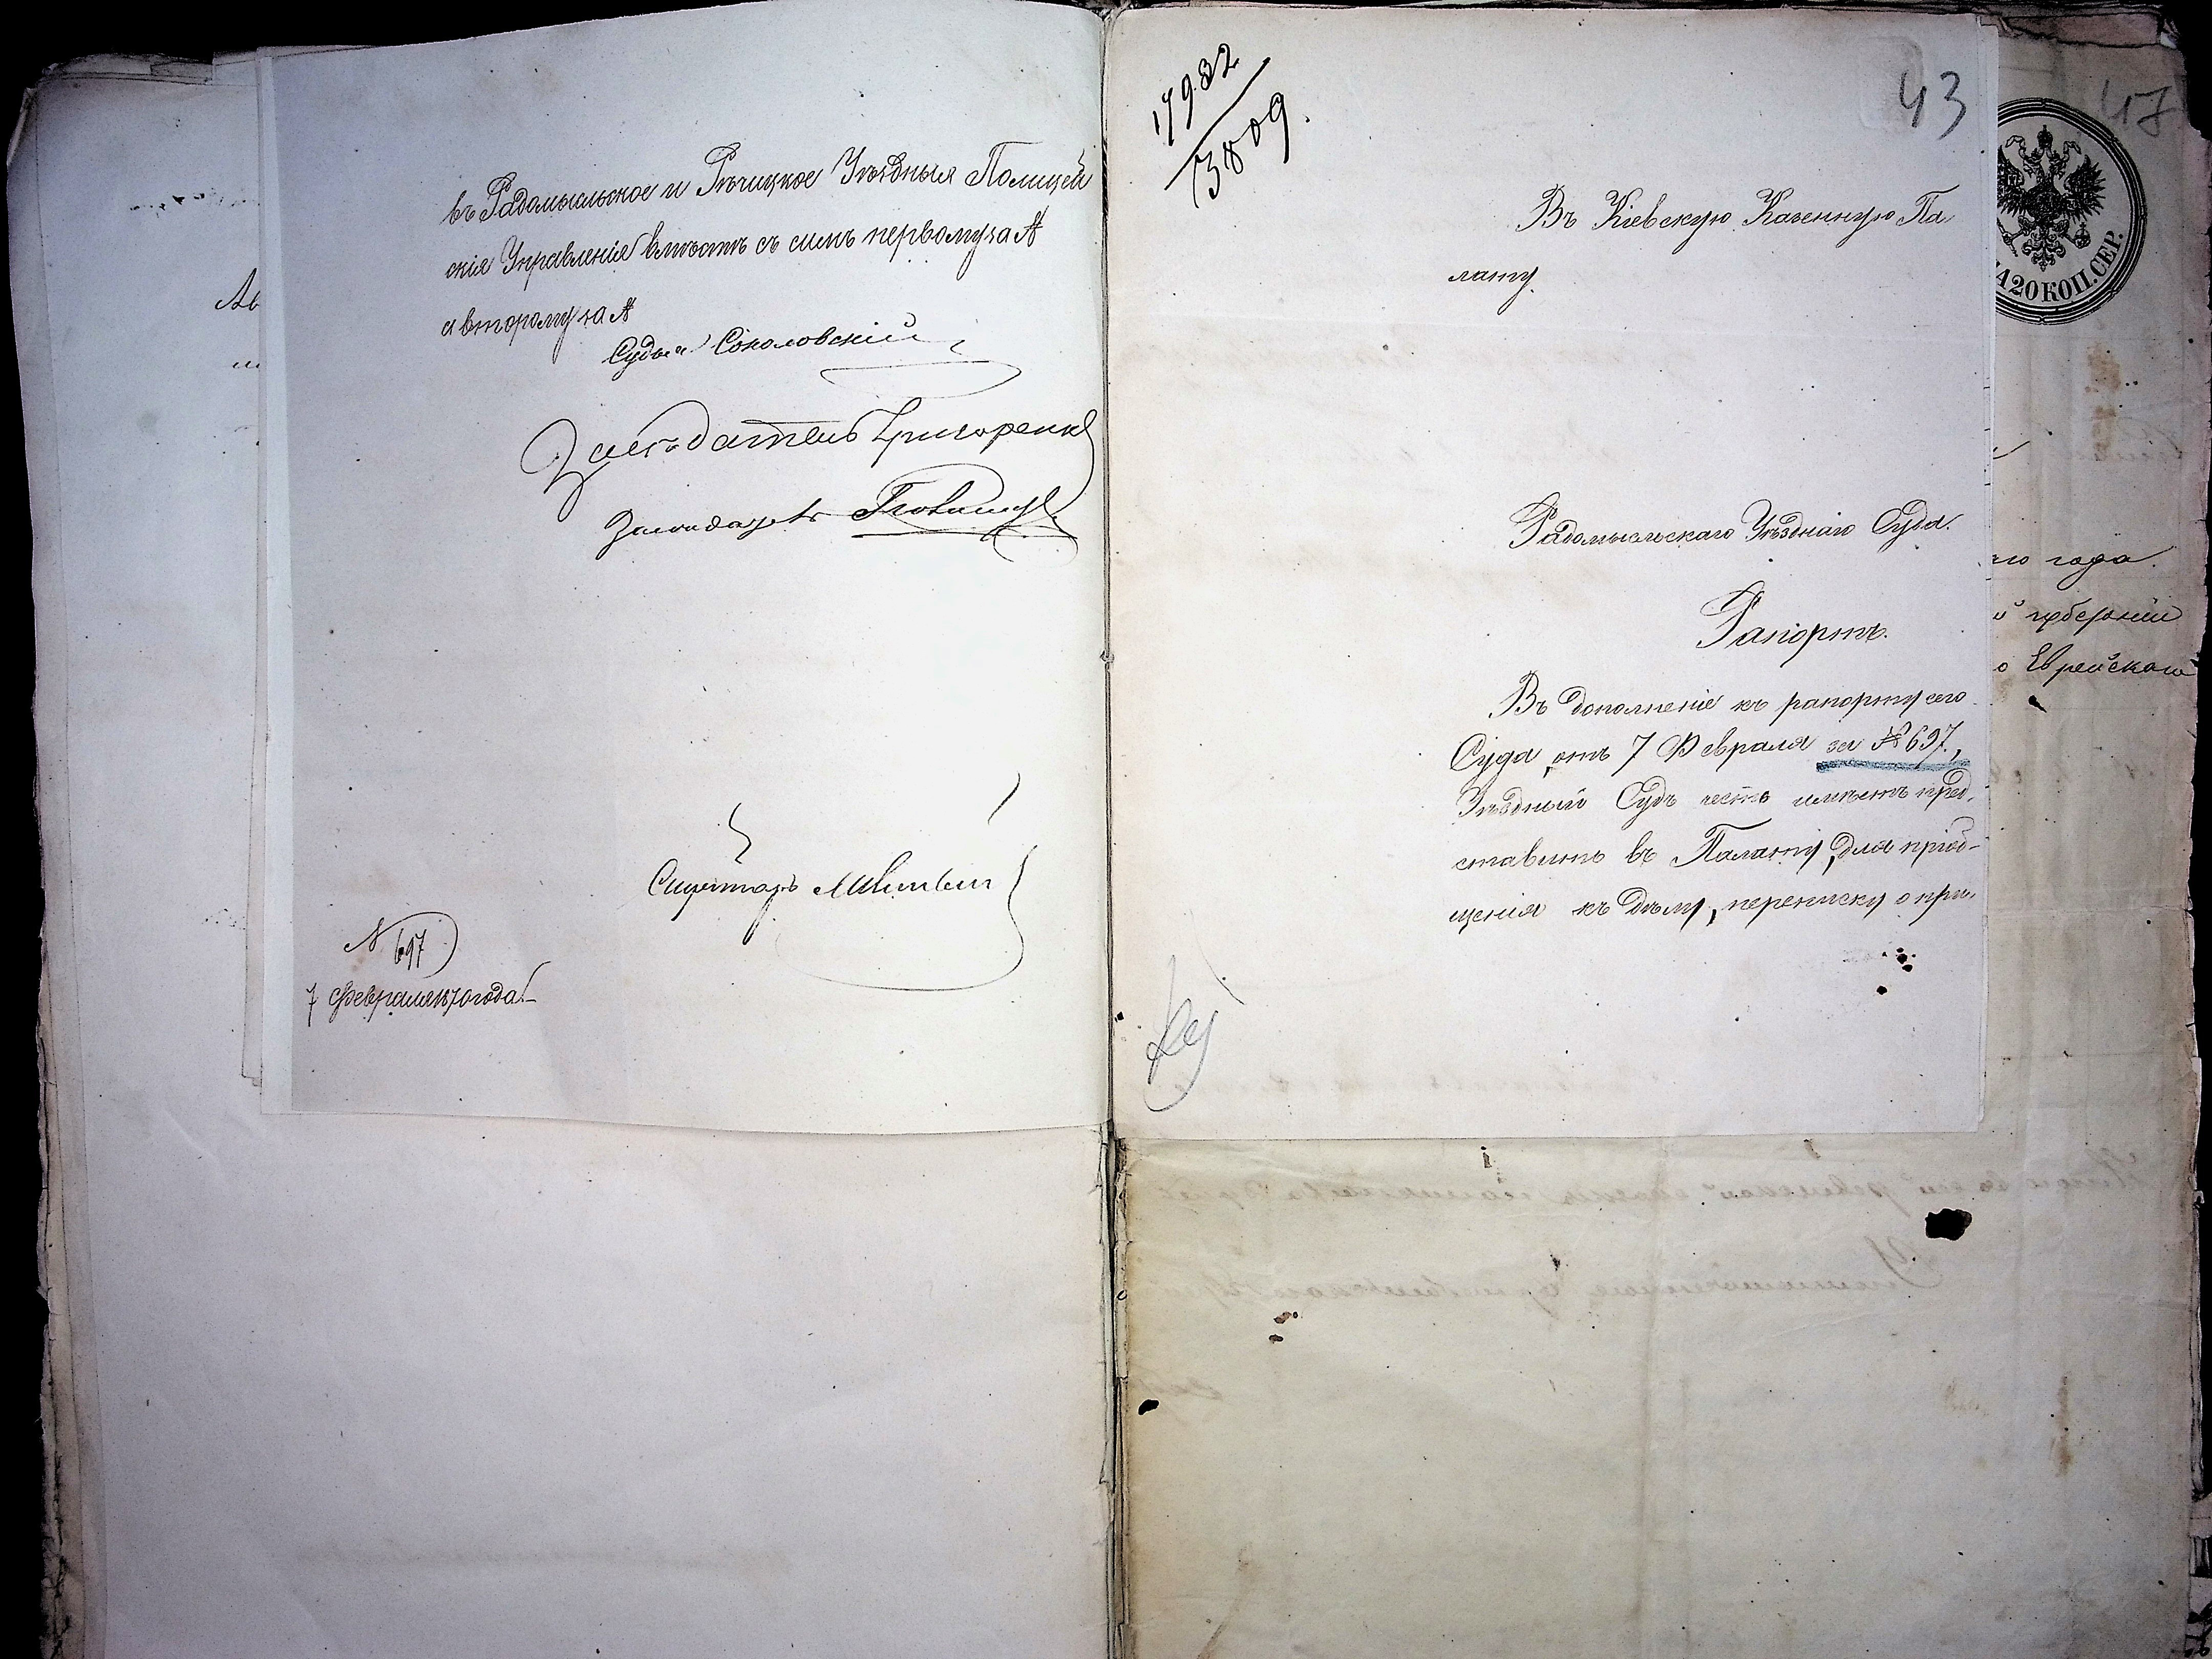 въ Радомысльское и Рѣчицкое Уѣздныя Полицей
скія Управленія вмѣстѣ съ симъ первому за №
а второму за №
Судья Соколовскій
Засѣдатель Григоренко
Засѣдатель
Секретарь
№ 697
7 Февраля 1870 года.
17982
3809.
43
Въ Кіевскую Казенную Па
лату.
Радомысльскаго Уѣзднаго Суда.
Рапортъ.
Въ дополненіе къ рапорту сего
Суда, отъ 7 Февраля за № 697,
Уѣздный Судъ честь имѣетъ пред-
ставить въ Палату, для пріоб-
щенія къ дѣлу, переписку о при-
47
А 20 КОП. СЕР.
го года.
й губерніи
о Еврейскаго
Ав